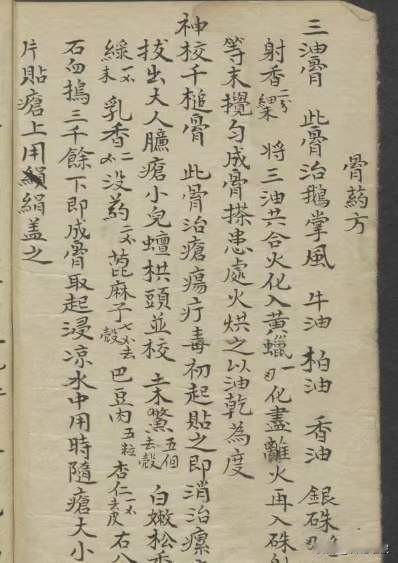 骨药方
三油骨 此骨治鹅掌風 牛油 柏油 香油 銀硃
射香 二分 細末 將三油共合火化入黃蠟一刄化盡離火再入硃
等末攪匀成骨搽患處火烘之以油乾為度
神校千槌骨 此骨治瘡瘍疔毒初起貼之即消治瘰
拔出大人臁瘡小兒蟺栱頭並校 土木鱉 五個 去殼 白嫩松香
綠 乳香 没药 萞麻子 去殼 巴豆肉 五粒 杏仁 去皮 右八
石臼搗三千餘下即成骨取起浸凉水中用時隨瘡大小
片貼瘡上用絹盖之